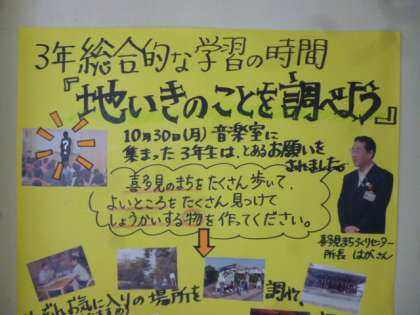 3年総合的な学習の時間
『地いきのことを調べよう』
10月30日(月)音楽室に
集まった3年生は、とあるお願いを
されました。
?
喜多見のまちをたくさん歩いて、
よいところをたくさん見つけて
しょうかいする物を作ってください。
喜多見まちづくりセンター
所長 はがさん
お気に入りの場所を
調べ、